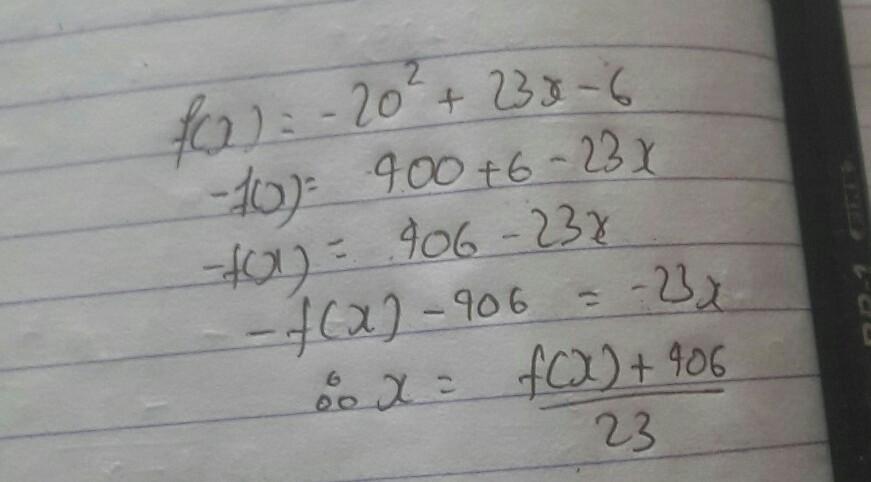 f(x) = -20² + 23x - 6
-f(x) = 400 + 6 - 23x
-f(x) = 406 - 23x
-f(x) - 406 = -23x
∴ x = \frac{f(x) + 406}{23}